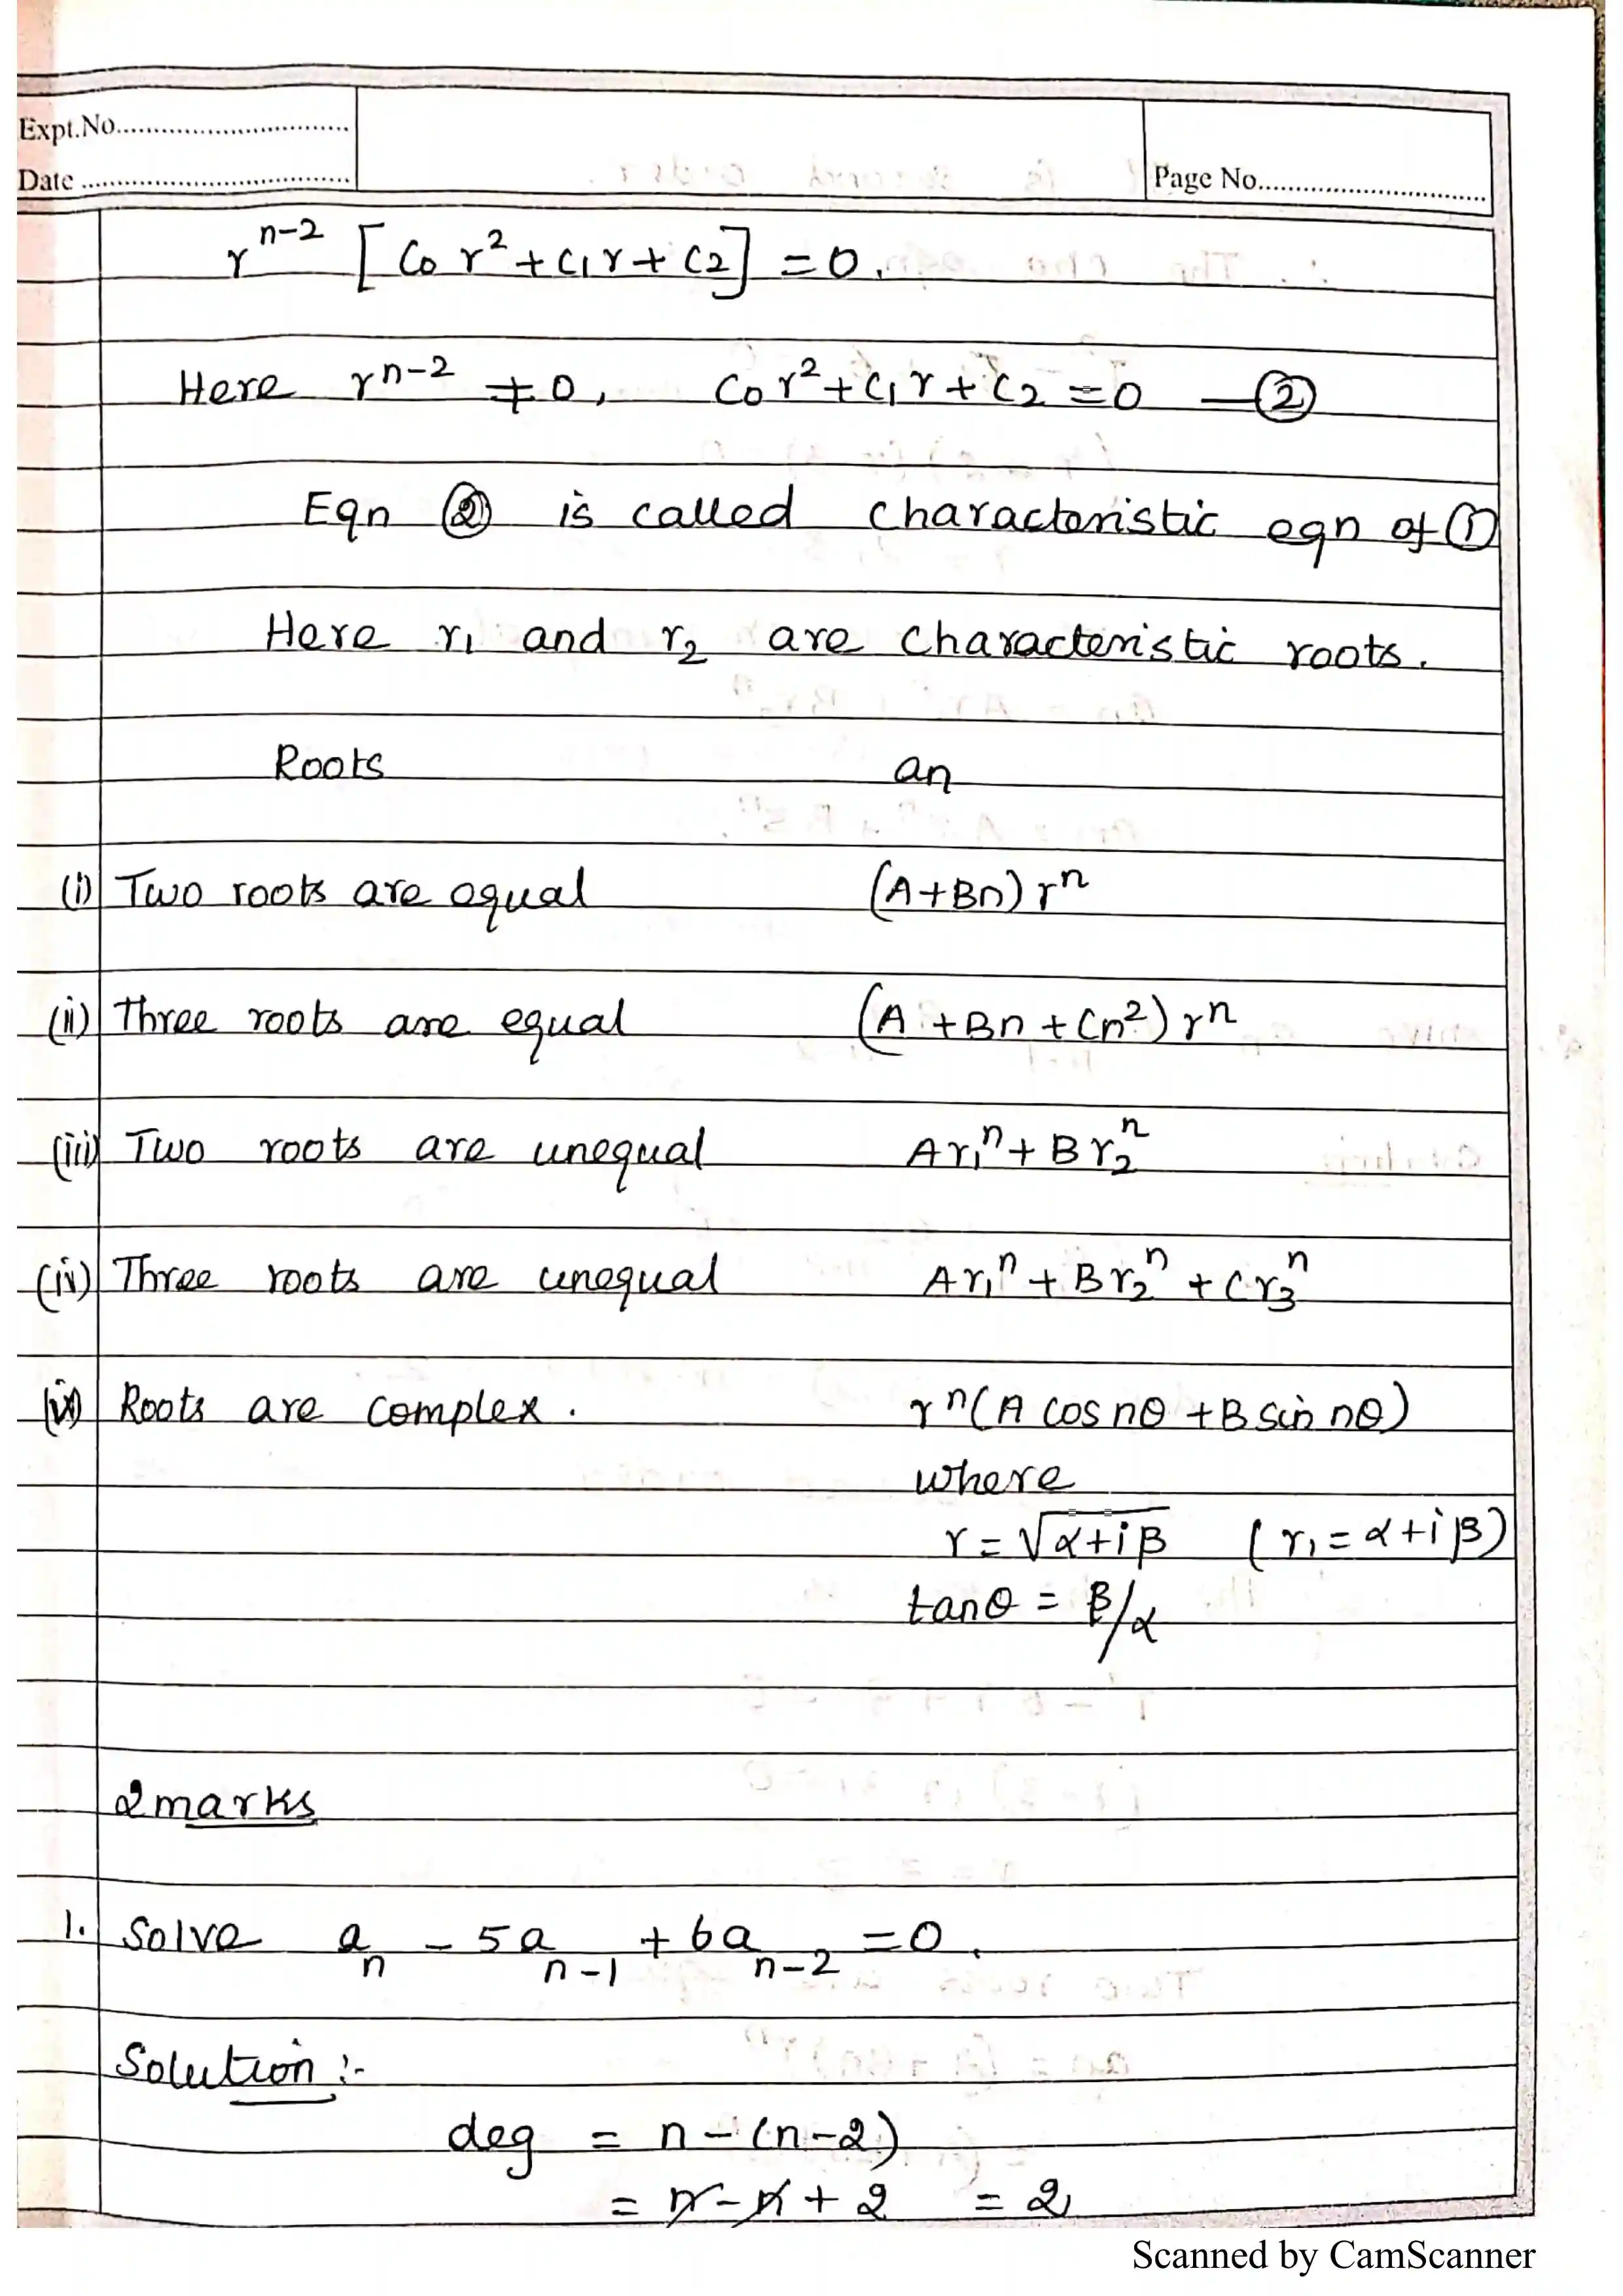 Expt.No..............................
Date ...................................
Page No..............................
r^{n-2} [C₀ r² + C₁ r + C₂] = 0.
Here r^{n-2} ≠ 0, C₀ r² + C₁ r + C₂ = 0 — ②
Eqn ② is called characteristic eqn of ①
Here r₁ and r₂ are characteristic roots.
Roots aₙ
(i) Two roots are equal (A+Bn) rⁿ
(ii) Three roots are equal (A + Bn + Cn²) rⁿ
(iii) Two roots are unequal Ar₁ⁿ + Br₂ⁿ
(iv) Three roots are unequal Ar₁ⁿ + Br₂ⁿ + Cr₃ⁿ
(v) Roots are complex. rⁿ(A cos nθ + B sin nθ)
where
r = √(α+iβ) (r₁ = α+iβ)
tanθ = β/α
2marks
1. Solve a_n - 5a_{n-1} + 6a_{n-2} = 0.
Solution :-
deg = n - (n-2)
= n - n + 2 = 2
Scanned by CamScanner